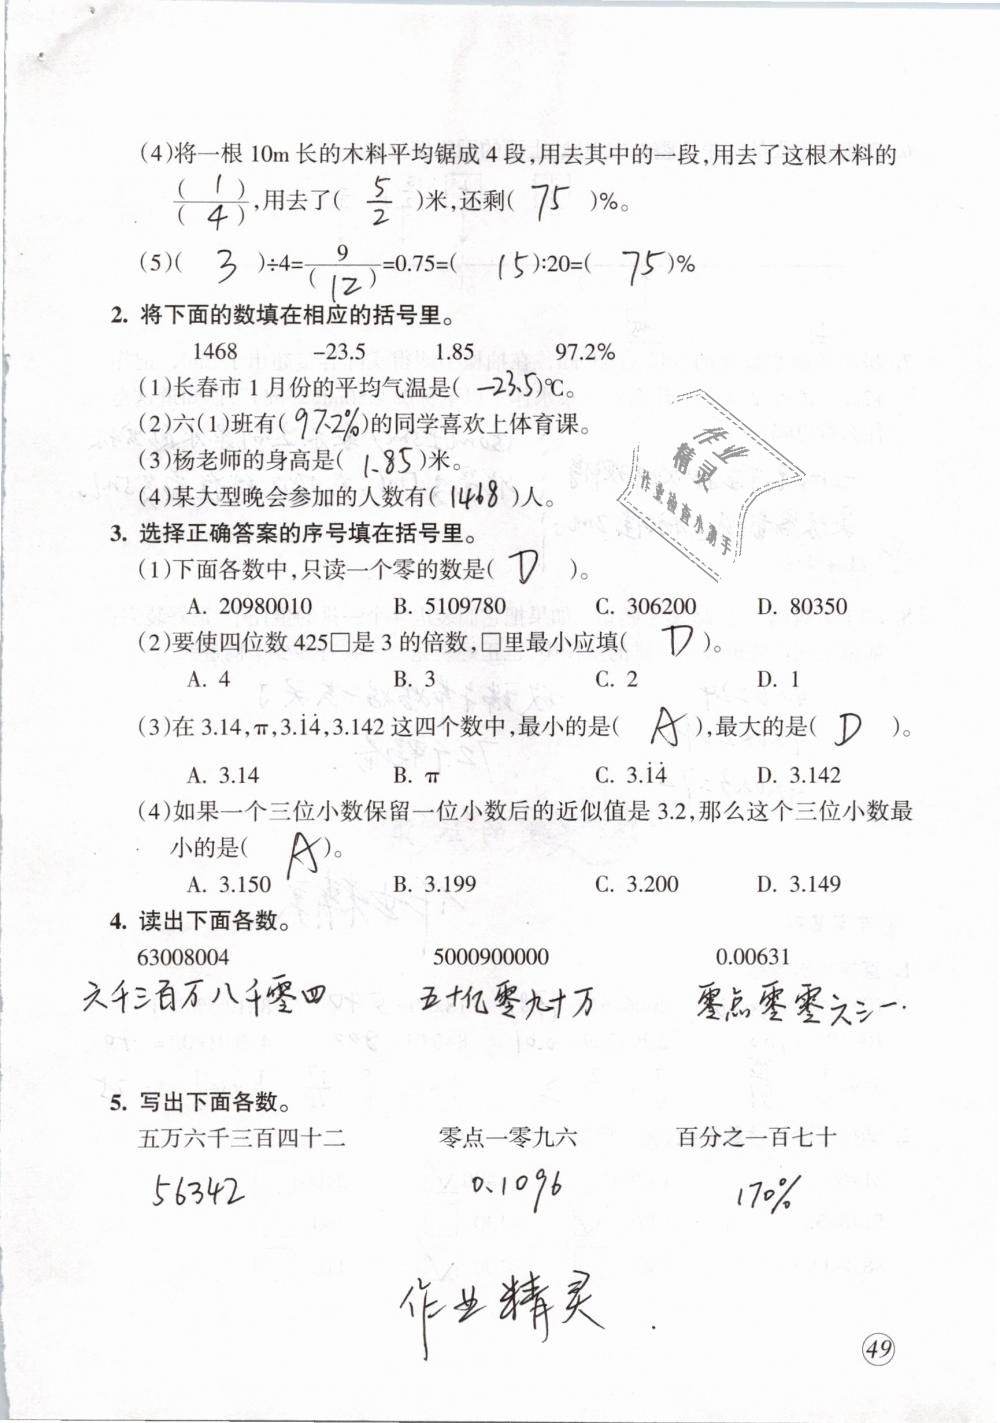 (4)将一根 10m 长的木料平均锯成 4 段,用去其中的一段,用去了这根木料的
( 1 )/( 4 ),用去了( 5/2 )米,还剩( 75 )%。
(5)( 3 )÷4=9/( 12 )=0.75=( 15 ):20=( 75 )%
2. 将下面的数填在相应的括号里。
1468 -23.5 1.85 97.2%
(1)长春市 1 月份的平均气温是( -23.5 )℃。
(2)六(1)班有( 97.2% )的同学喜欢上体育课。
(3)杨老师的身高是( 1.85 )米。
(4)某大型晚会参加的人数有( 1468 )人。
作业
精灵
作业检查小帮手
3. 选择正确答案的序号填在括号里。
(1)下面各数中,只读一个零的数是( D )。
A. 20980010 B. 5109780 C. 306200 D. 80350
(2)要使四位数 425□是 3 的倍数,□里最小应填( D )。
A. 4 B. 3 C. 2 D. 1
(3)在 3.14,π,3.1̇4̇,3.142 这四个数中,最小的是( A ),最大的是( D )。
A. 3.14 B. π C. 3.1̇4̇ D. 3.142
(4)如果一个三位小数保留一位小数后的近似值是 3.2,那么这个三位小数最
小的是( A )。
A. 3.150 B. 3.199 C. 3.200 D. 3.149
4. 读出下面各数。
63008004 5000900000 0.00631
六千三百万八千零四 五十亿零九十万 零点零零六三一.
5. 写出下面各数。
五万六千三百四十二 零点一零九六 百分之一百七十
56342 0.1096 170%
作业精灵.
49